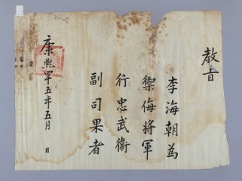 教旨
李海朝為
禦侮將軍
行忠武衛
副司果者
康熙五年五月 日